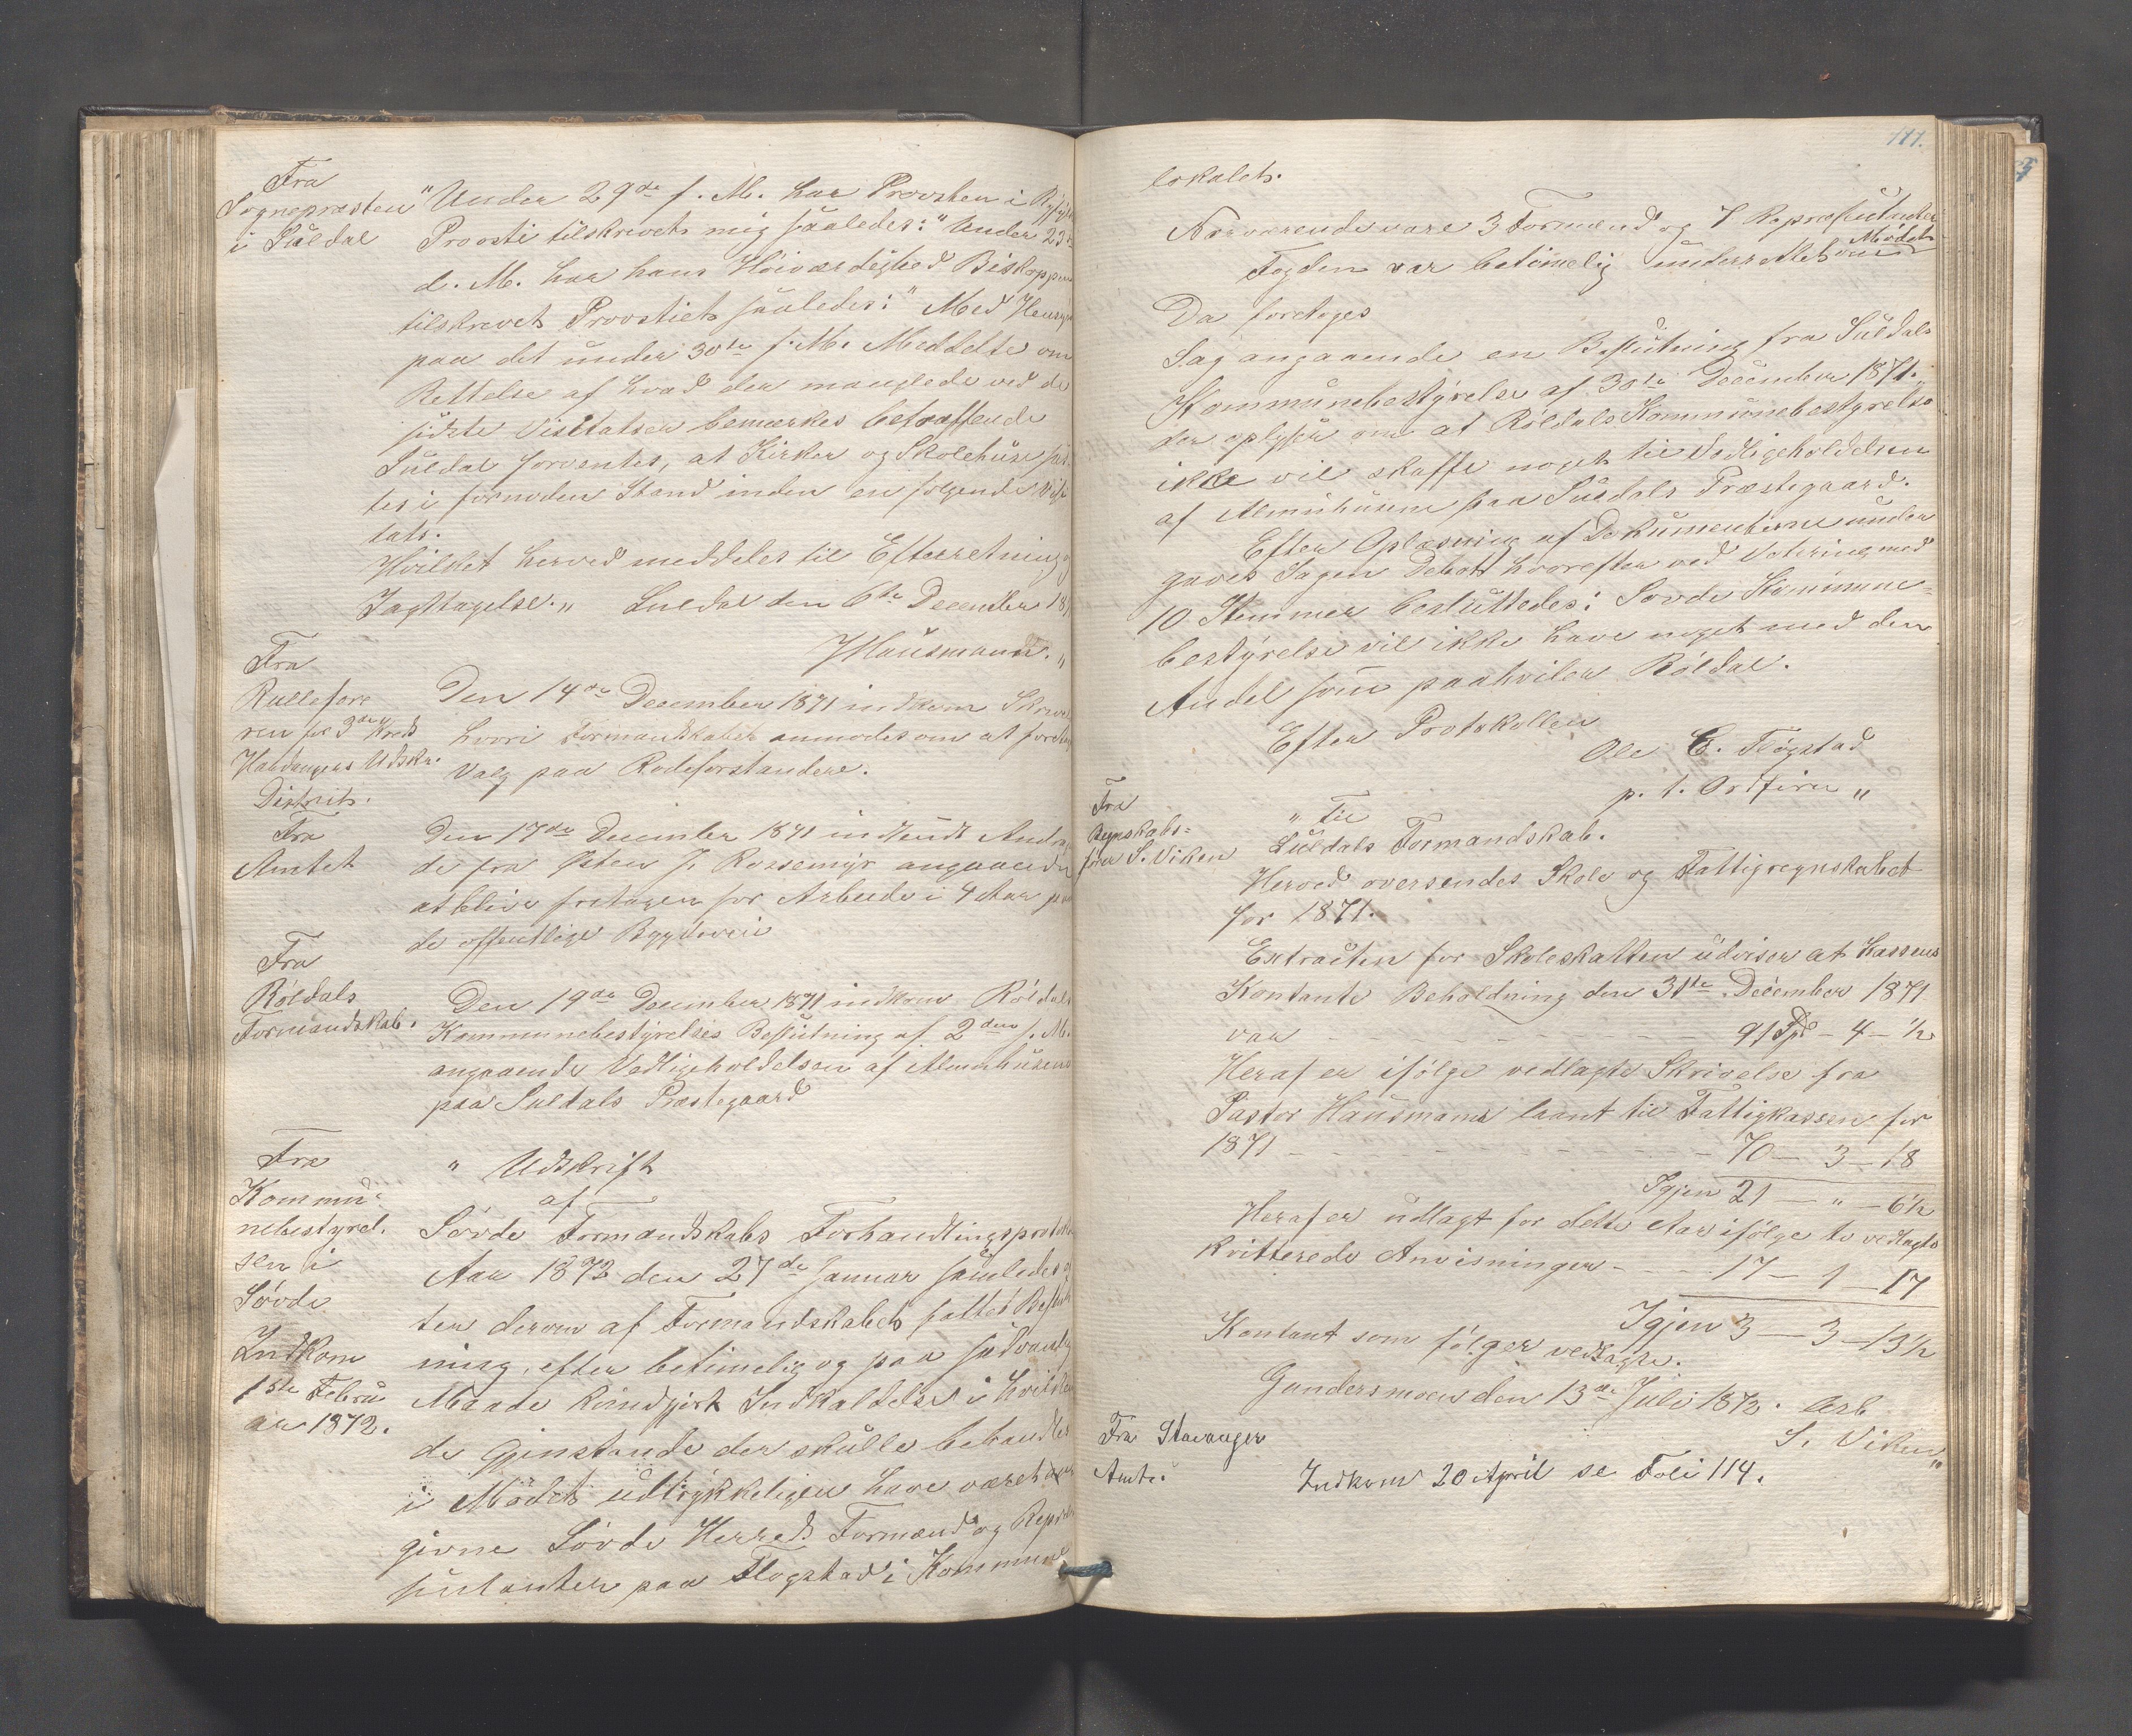 Fra
Sognepræsten
i Suldal
"Under 29de f. M. har Provsten i
Provsti tilskrevet mig saaledes: "Under 23de
d. M. har hans Höiærdighed Biskoppen
tilskrevet Provstiet saaledes: "Med Hensyn
paa det under 30te f. M. Meddelte om
Rettelse af hvad der manglede ved de
sidste Visitatser bemærkes betræffende
Suldal forventes, at Kirker og Skolehuse sæt
tes i fornøden Stand inden en følgende Visi
tats.
Hvilket herved meddeles til Efterretning og
Iagttagelse." Suldal den 6te December 18
J Hausmann. "
Fra
Rullefore
ren for 3die Kreds
Hardangers Udskr.
Distrikt.
Den 14de December 1871 indkom Skriv
hvori Formandskabet anmodes om at foretage
Valg paa Rodeforstandere.
Fra
Amtet
Den 17de December 1871 indsendt Andra
de fra Peter J. Rossemyr angaaende
at blive fritagen for Arbeide i 4 Aar paa
de offentlige Bygdeveie
Fra
Röldals
Formandskab.
Den 19de December 1871 indkom Röldals
Kommunebestyrelses Beslutning af 2den f. M.
angaaende Vedligeholdelsen af Almuehusene
paa Suldals Præstegaard
Fra
Kommu-
nebestyrel-
sen i
Sövde
Indkom
1ste Febru
ar 1872.
" Udskrift
af
Sövde Formandskabs Forhandlingsprotokol
Aar 1872 den 27de Januar samledes ef
ter derom af Formandskabet fattet Beslut
ning, efter betimelig og paa sædvanlig
Maade kundgjort Indkaldelse i hvilken
de Gjenstande der skulle behandles
i Mödet udtrykkeligen have været op
givne Sövde Herreds Formænd og Repræ
sentanter paa Flögstad i Kommune
111.
lokalet.
Nærværende vare 3 Formænd og 7 Repræsentanter
Fogden var betimelig underrettet om Mödet
Da foretoges
Sag angaaende en Beslutning fra Suldals
Kommunebestyrelse af 30te December 1871.,
der oplyser om at Röldals Kommunebestyrelse
ikke vil skaffe noget til Vedligeholdelsen
af Almuhusene paa Suldals Præstegaard.
Efter Oplæsning af Dokumenterne under
gaves Sagen Debat hvorefter ved Votering med
10 Stemmer besluttedes: Sövde Kommune-
bestyrelse vil ikke have noget med den
Andel som paahviler Röldal.
Efter Protokollen
Ole E. Flögstad
p. t. Ordförer "
Fra
Regnskabs-
förer S. Viken
" Til
Suldals Formandskab.
Herved oversendes Skole og Fattigregnskabet
for 1871.
Extracten for Skoleskatten udviser at Kassens
Kontante Beholdning den 31te December 1871
var - - - 91 Spd - 4 - ½
Heraf er ifölge vedlagte Skrivelse fra
Pastor Hausmann laant til Fattigkassen for
1871 - - - 70 - 3 - 18
Igjen 21 - " - 6½
Heraf er udlagt for dette Aar ifölge to vedlagte
kvitterede Anvisninger - - 17 - 1 - 17
Igjen 3 - 3 - 13½
Kontant som fölger vedlagte.
Gundersmoen den 13de Juli 1872. Ærb.
S. Viken "
Fra Stavanger
Amt.
Indkom 20 April se Foli 114.